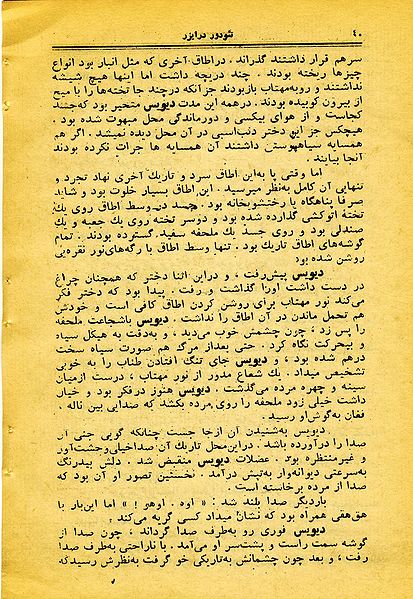 ۴۰
تئودور درایزر
سرهم قرار داشتند گذراند. دراطاق آخری که مثل انبار بود انواع
چیزها ریخته بودند. چند دریچه داشت اما اینها هیچ شیشه
نداشتند و روبه‌مهتاب بازبودند جز آنکه درچند جا تخته‌ها را با میخ
از بیرون کوبیده بودند. درهمه این مدت دیویس متحیر بود که‌جسد
کجاست و از هوای بیکسی و دورماندگی محل مبهوت شده بود.
هیچکس جز این دختر دنب‌اسبی در آن محل دیده نمیشد. اگر هم
همسایه سیاهپوستی داشتند آن همسایه ها جرات نکرده بودند
آنجا بیایند.
اما وقتی پا به‌این اطاق سرد و تاریک آخری نهاد تجرد و
تنهایی آن کامل به‌نظر میرسید. این اطاق بسیار خلوت بود و شاید
صرفا پناهگاه یا رختشویخانه بود. جسد در وسط اطاق روی یک
تخته اتوکشی گذارده شده بود و دوسر تخته روی یک جعبه و یک
صندلی بود و روی جسد یک ملحفه سفید گسترده بودند. تمام
گوشه‌های اطاق تاریک بود. تنها وسط اطاق با رگه‌های نور نقره‌یی
روشن شده بود.
دیویس پیش‌رفت، و دراین اثنا دختر که همچنان چراغ
در دست داشت اورا گذاشت و رفت. پیدا بود که دختر فکر
می‌کند نور مهتاب برای روشن کردن اطاق کافی است و خودش
هم تحمل ماندن در آن اطاق را نداشت. دیویس باشجاعت ملحفه
را پس زد، چون چشمش خوب می‌دید، و به‌دقت به هیکل سیاه
و بیحرکت نگاه کرد. حتی بعداز مرگ هم صورت سیاه سخت
درهم شده بود، و دیویس جای تنگ افتادن طناب را به خوبی
تشخیص میداد. یک شعاع مدور از نور مهتاب، درست ازمیان
سینه و چهره مرده می‌گذشت. دیویس هنوز درفکر بود و خیار
داشت خیلی زود ملحفه را روی مرده بکشد که صدایی بین ناله و
فغان به‌گوش‌او رسید.
دیویس به‌شنیدن آن ازجا جست چنانکه گویی جنی آن
صدا را درآورده باشد. دراین‌محل تاریک آن صداخیلی‌وحشت‌آور
و غیرمنتظره بود. عضلات دیویس منقبض شد. دلش بیدرنگ
به‌سرعتی دیوانه‌وار به‌تپش درآمد. نخستین تصور او آن بود که
صدا از مرده برخاسته است.
باردیگر صدا بلند شد: «اوه. اوهر!» اما این‌بار با
هق‌هقی همراه بود که نشان میداد کسی گریه می‌کند.
دیویس فوری رو به‌طرف صدا گرداند، چون صدا از
گوشه سمت راست و پشت‌سر او می‌آمد. با ناراحتی به‌طرف صدا
رفت، و بعد چون چشمانش به‌تاریکی خو گرفت به‌نظرش رسیدکه